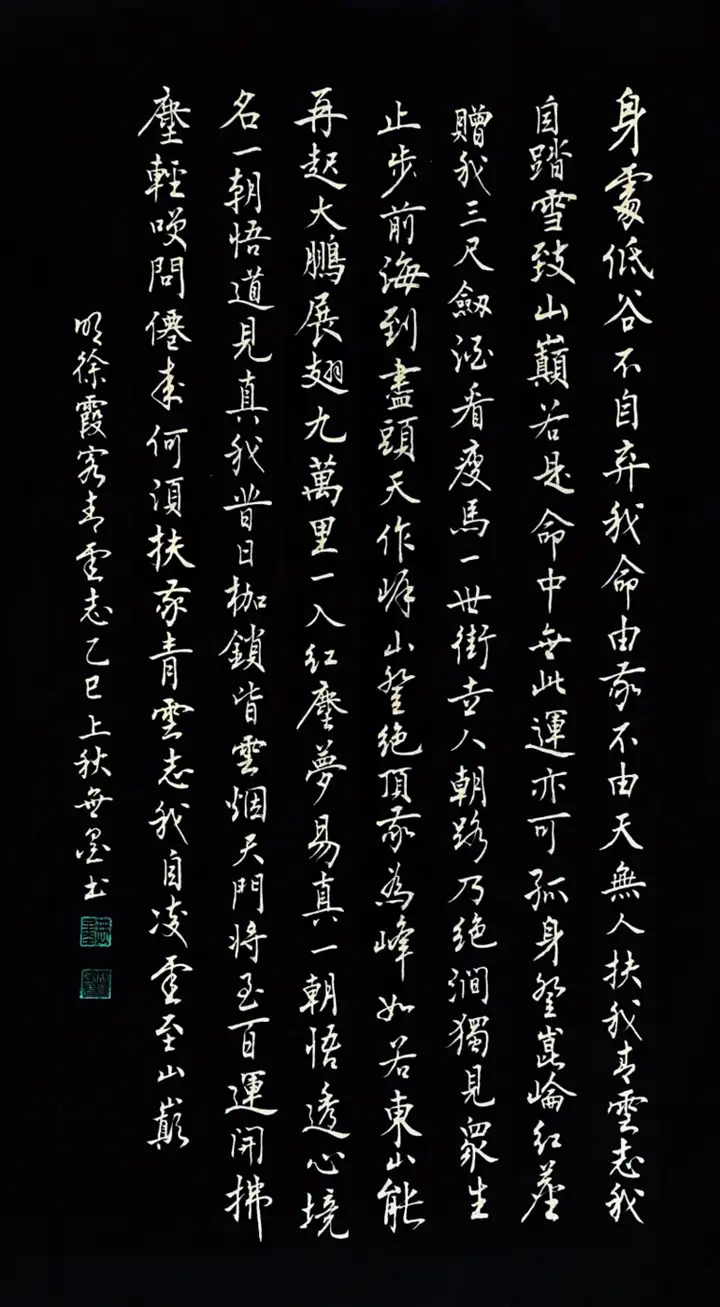 身處低谷不自弃我命由我不由天無人扶我青雲志我
自踏雪致山巔若是命中無此運亦可孤身登崑崙紅塵
贈我三尺劍酒看瘦馬一世街壺人朝路乃絕澗獨見眾生
止步前海到盡頭天作岸山登絕頂我為峰如若東山能
再起大鵬展翅九萬里一入紅塵夢易真一朝悟透心境
名一朝悟道見真我昔日枷鎖皆雲烟天門將至百運開拂
塵輕嘆問僊來何須扶我青雲志我自凌雲至山巔
明徐霞客青雲志乙巳上秋無墨書